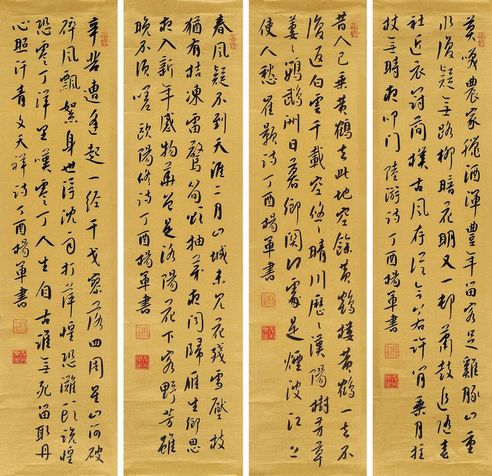 莫笑農家臘酒渾豐年留客足雞豚山重
水復疑無路柳暗花明又一邨蕭鼓追隨春
社近衣冠簡樸古風存從今若許閒乘月拄
杖無時夜叩門陸游詩丁酉楊軍書
昔人已乘黃鶴去此地空餘黃鶴樓黃鶴一去不
復返白雲千載空悠悠晴川歷歷漢陽樹芳草
萋萋鸚鵡洲日暮鄉關何處是煙波江上
使人愁崔顥詩丁酉楊軍書
春風疑不到天涯二月山城未見花殘雪壓枝
猶有桔凍雷驚筍欲抽芽夜聞歸雁生鄉思
病入新年感物華曾是洛陽花下客野芳雖
晚不須嗟歐陽修詩丁酉楊軍書
辛苦遭逢起一經干戈寥落四周星山河破
碎風飄絮身世浮沈雨打萍惶恐灘頭說惶
恐零丁洋里嘆零丁人生自古誰無死留取丹
心照汗青文天祥詩丁酉楊軍書